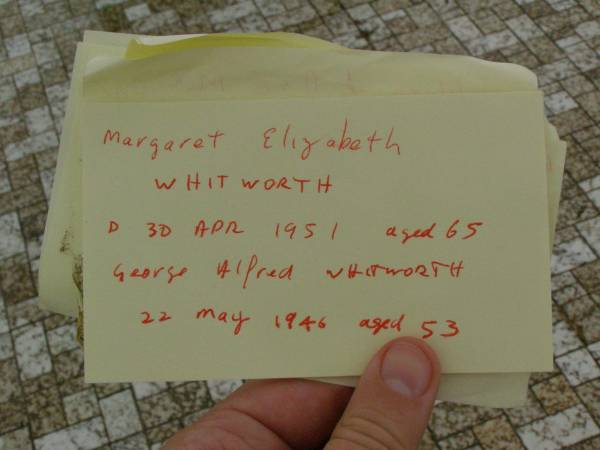 Margaret Elizabeth
WHITWORTH
D 30 APR 1951 aged 65
George Alfred WHITWORTH
22 May 1946 aged 53